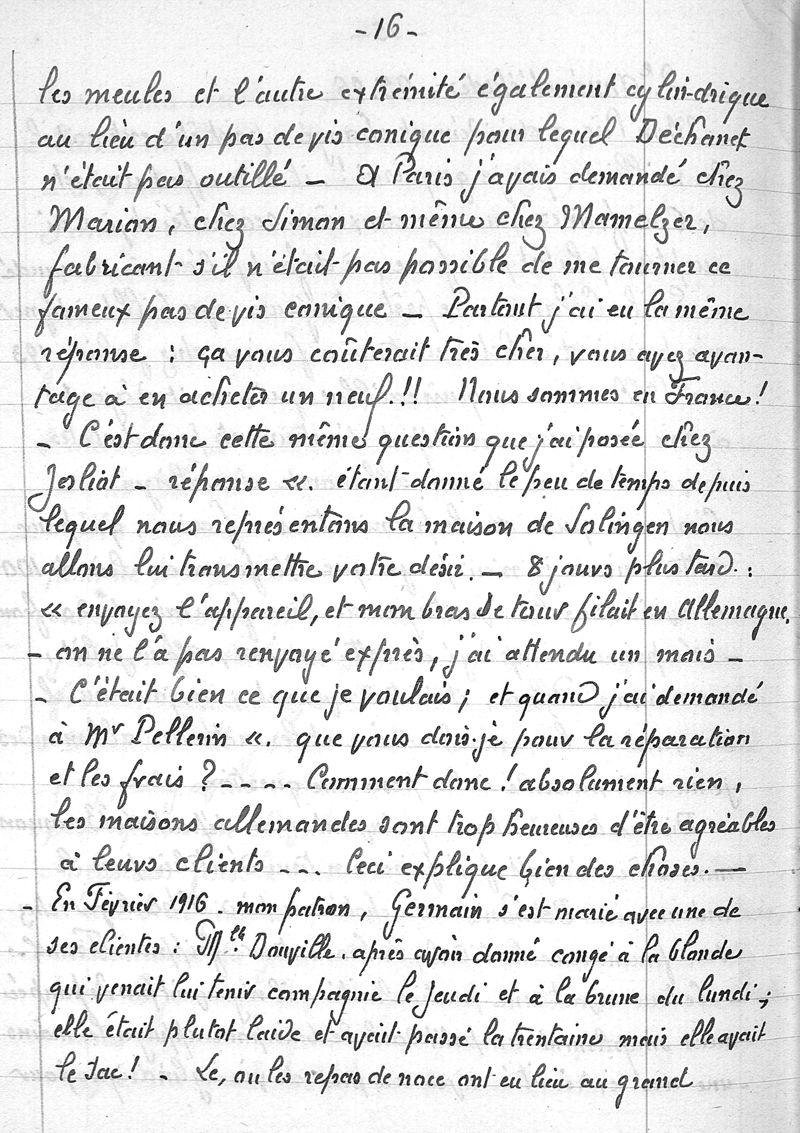 - 16 -
les meules et l'autre extrémité également cylin-drique
au lieu d'un pas de vis conique pour lequel Déchanet
n'était pas outillé — A Paris j'avais demandé chez
Marian, chez Simon et même chez Mamelzer,
fabricant s'il n'était pas possible de me tourner ce
fameux pas de vis conique — Partout j'ai eu la même
réponse : ça vous coûterait très cher, vous avez avan-
tage à en acheter un neuf.!! Nous sommes en France!
- C'est donc cette même question que j'ai posée chez
Jesliot - réponse «. étant-donné le peu de temps depuis
lequel nous représentons la maison de Solingen nous
allons lui transmettre votre désir. — 8 jours plus tard. :
« envoyez l'appareil, et mon bras de tour filait en Allemagne.
- on ne l'a pas renvoyé exprès, j'ai attendu un mois -
- C'était bien ce que je voulais ; et quand j'ai demandé
à Mr Pellerin «. que vous dois-je pour la réparation
et les frais ? - - - - Comment donc ! absolument rien,
les maisons allemandes sont trop heureuses d'être agréables
à leurs clients - - - Ceci explique bien des choses. —
- En Février 1916. mon patron, Germain s'est marié avec une de
ses clientes : Mlle Douville. après avoir donné congé à la blonde
qui venait lui tenir compagnie le Jeudi et à la brune du lundi ;
elle était plutot laide et avait passé la trentaine mais elle avait
le sac ! - Le, ou les repas de noce ont eu lieu au grand